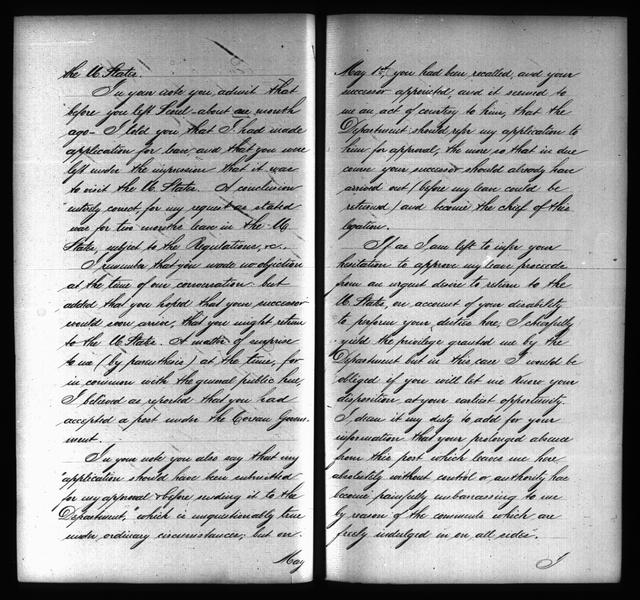 the U. States.
In your note you admit that
before you left Seoul - about one month
ago - I told you that I had made
application for leave and that you were
left under the impression that it was
to visit the U. States. A conclusion
entirely correct, for my request as stated
was for two months leave in the U.
States, subject to the Regulations, &c.
I remember that you made no objection
at the time of our conversation but
added that you hoped that your successor
would soon arrive, that you might return
to the U. States. A matter of surprise
to me (by parenthesis) at the time, for
in common with the general public here,
I believed as reported that you had
accepted a post under the Corean Govern-
ment.
In your note you also say that my
"application should have been submitted
for my approval before sending it to the
Department," which is unquestionably true
under ordinary circumstances; but on
May
May 1st, you had been recalled, and your
successor appointed, and it seemed to
me an act of courtesy to him, that the
Department should refer my application to
him for approval, the more so that in due
course your successor should already have
arrived out (before my leave could be
returned) and become the chief of this
legation.
If as I am left to infer your
hesitation to approve my leave proceeds
from an urgent desire to return to the
U. States, on account of your disability
to perform your duties here, I cheerfully
yield the privilege granted me by the
Department but in this case I would be
obliged if you will let me know your
disposition at your earliest opportunity.
I deem it my duty to add for your
information that your prolonged absence
from this post which leaves me here
absolutely without control or authority has
become painfully embarrassing to me
by reason of the comments which are
freely indulged in on all sides.
I